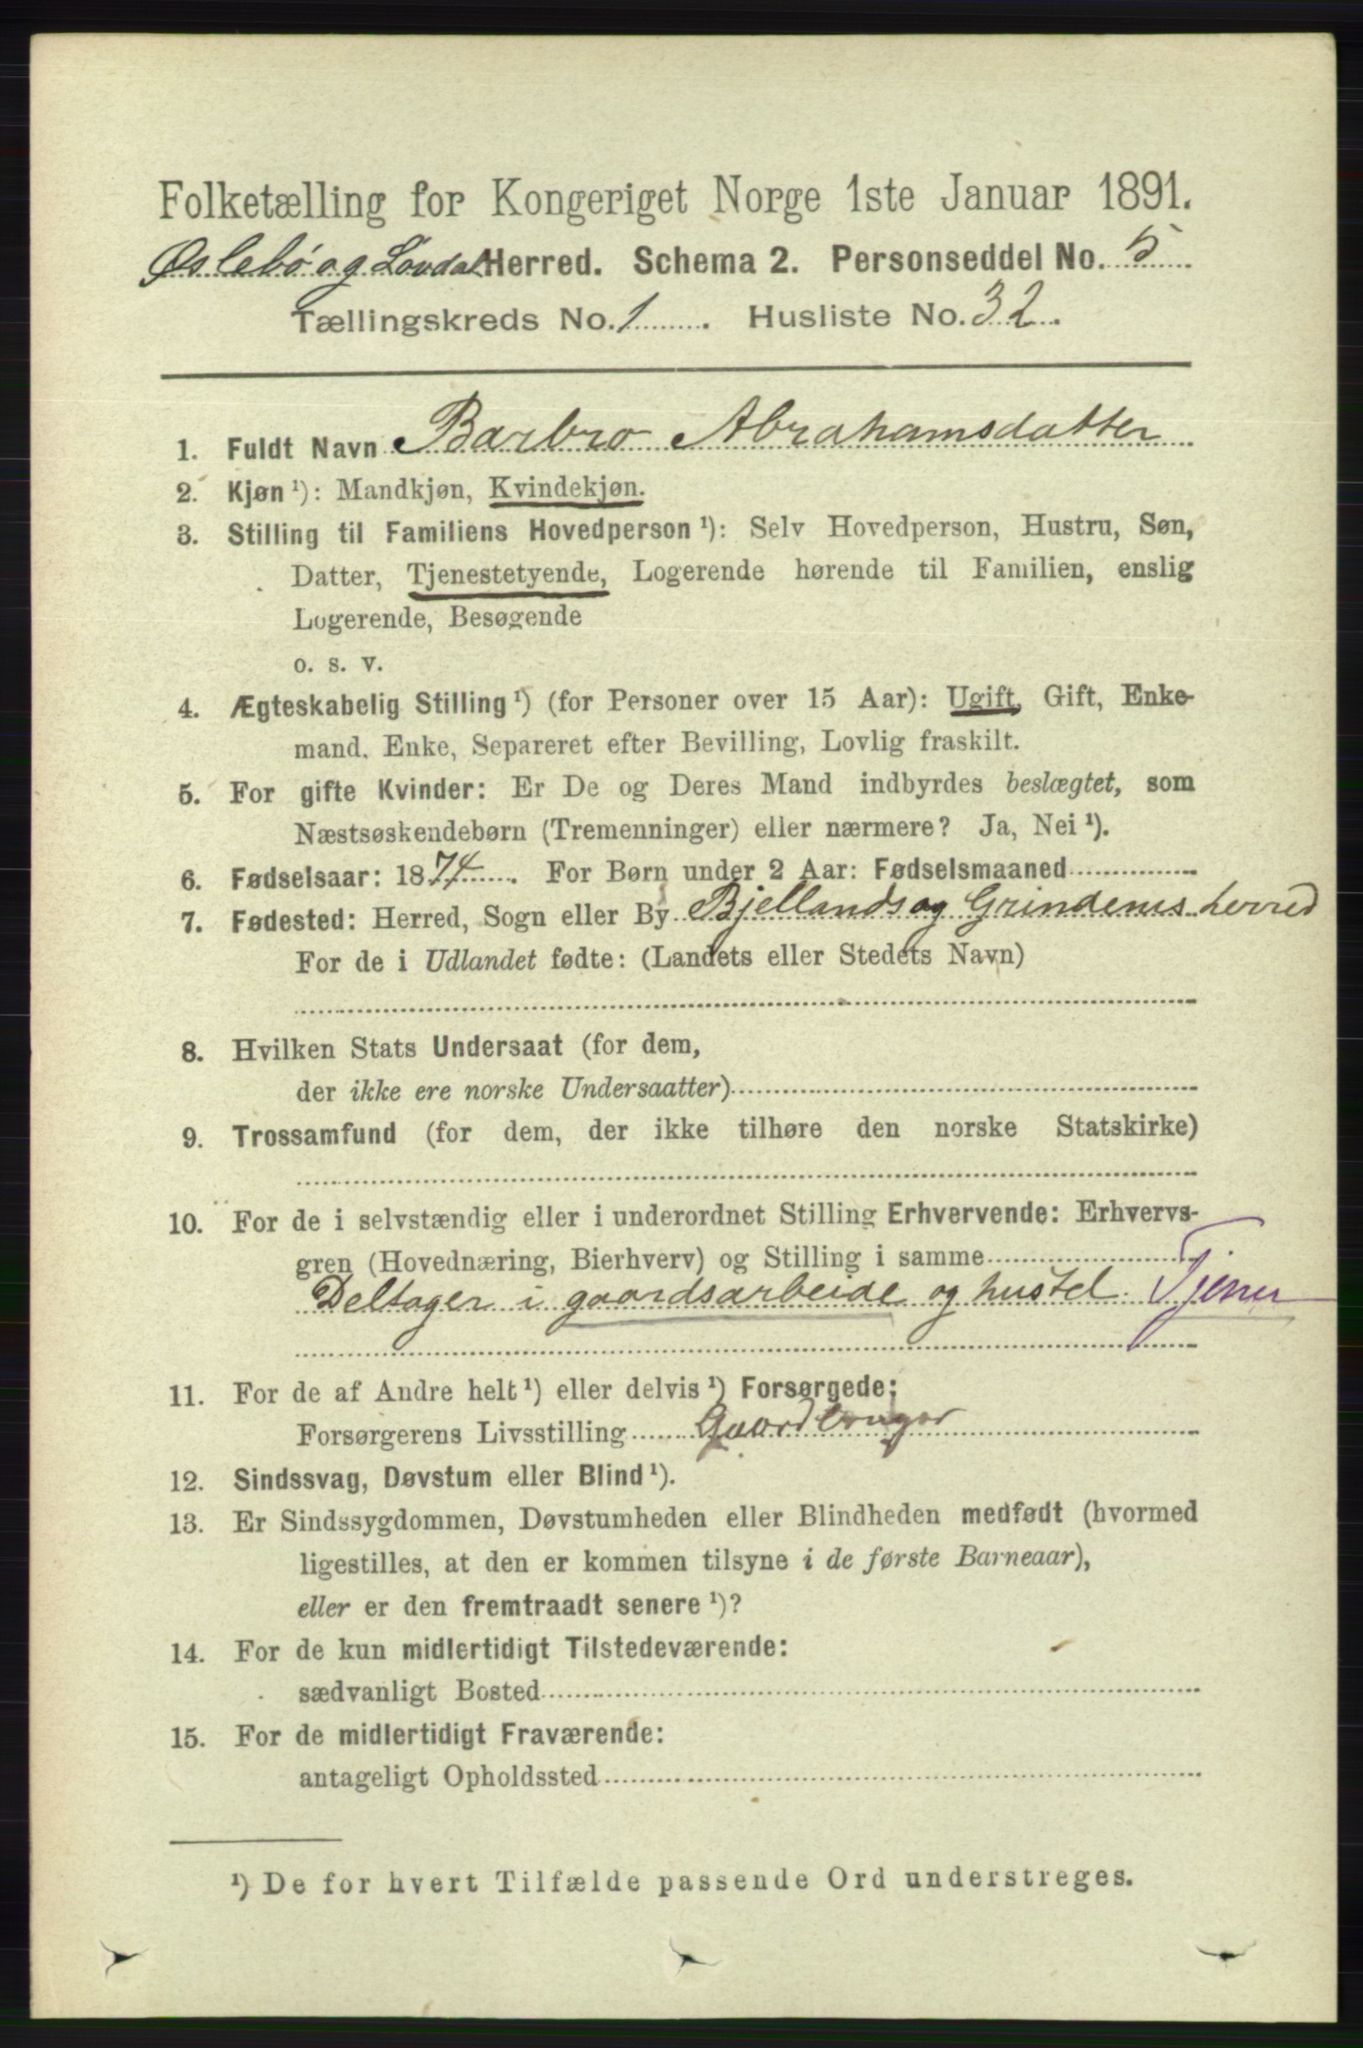 Folketælling for Kongeriget Norge 1ste Januar 1891.
Øslebø og Løvdal Herred. Schema 2. Personseddel No. 5
Tællingskreds No. 1. Husliste No. 32.
1. Fuldt Navn Barbro Abrahamsdatter
2. Kjøn¹): Mandkjøn, Kvindekjøn.
3. Stilling til Familiens Hovedperson¹): Selv Hovedperson, Hustru, Søn,
Datter, Tjenestetyende, Logerende hørende til Familien, enslig
Logerende, Besøgende
o. s. v.
4. Ægteskabelig Stilling¹) (for Personer over 15 Aar): Ugift, Gift, Enke-
mand, Enke, Separeret efter Bevilling, Lovlig fraskilt.
5. For gifte Kvinder: Er De og Deres Mand indbyrdes beslægtet, som
Næstsøskendebørn (Tremenninger) eller nærmere? Ja, Nei¹).
6. Fødselsaar: 1874. For Børn under 2 Aar: Fødselsmaaned
7. Fødested: Herred, Sogn eller By Bjellands og Grindems herred
For de i Udlandet fødte: (Landets eller Stedets Navn)
8. Hvilken Stats Undersaat (for dem,
der ikke ere norske Undersaatter)
9. Trossamfund (for dem, der ikke tilhøre den norske Statskirke)
10. For de i selvstændig eller i underordnet Stilling Erhvervende: Erhvervs-
gren (Hovednæring, Bierhverv) og Stilling i samme
Deltager i gaardsarbeide og hustel. Tjener
11. For de af Andre helt¹) eller delvis¹) Forsørgede:
Forsørgerens Livsstilling Gaardbruger
12. Sindssvag, Døvstum eller Blind¹).
13. Er Sindssygdommen, Døvstumheden eller Blindheden medfødt (hvormed
ligestilles, at den er kommen tilsyne i de første Barneaar),
eller er den fremtraadt senere¹)?
14. For de kun midlertidigt Tilstedeværende:
sædvanligt Bosted
15. For de midlertidigt Fraværende:
antageligt Opholdssted
¹) De for hvert Tilfælde passende Ord understreges.